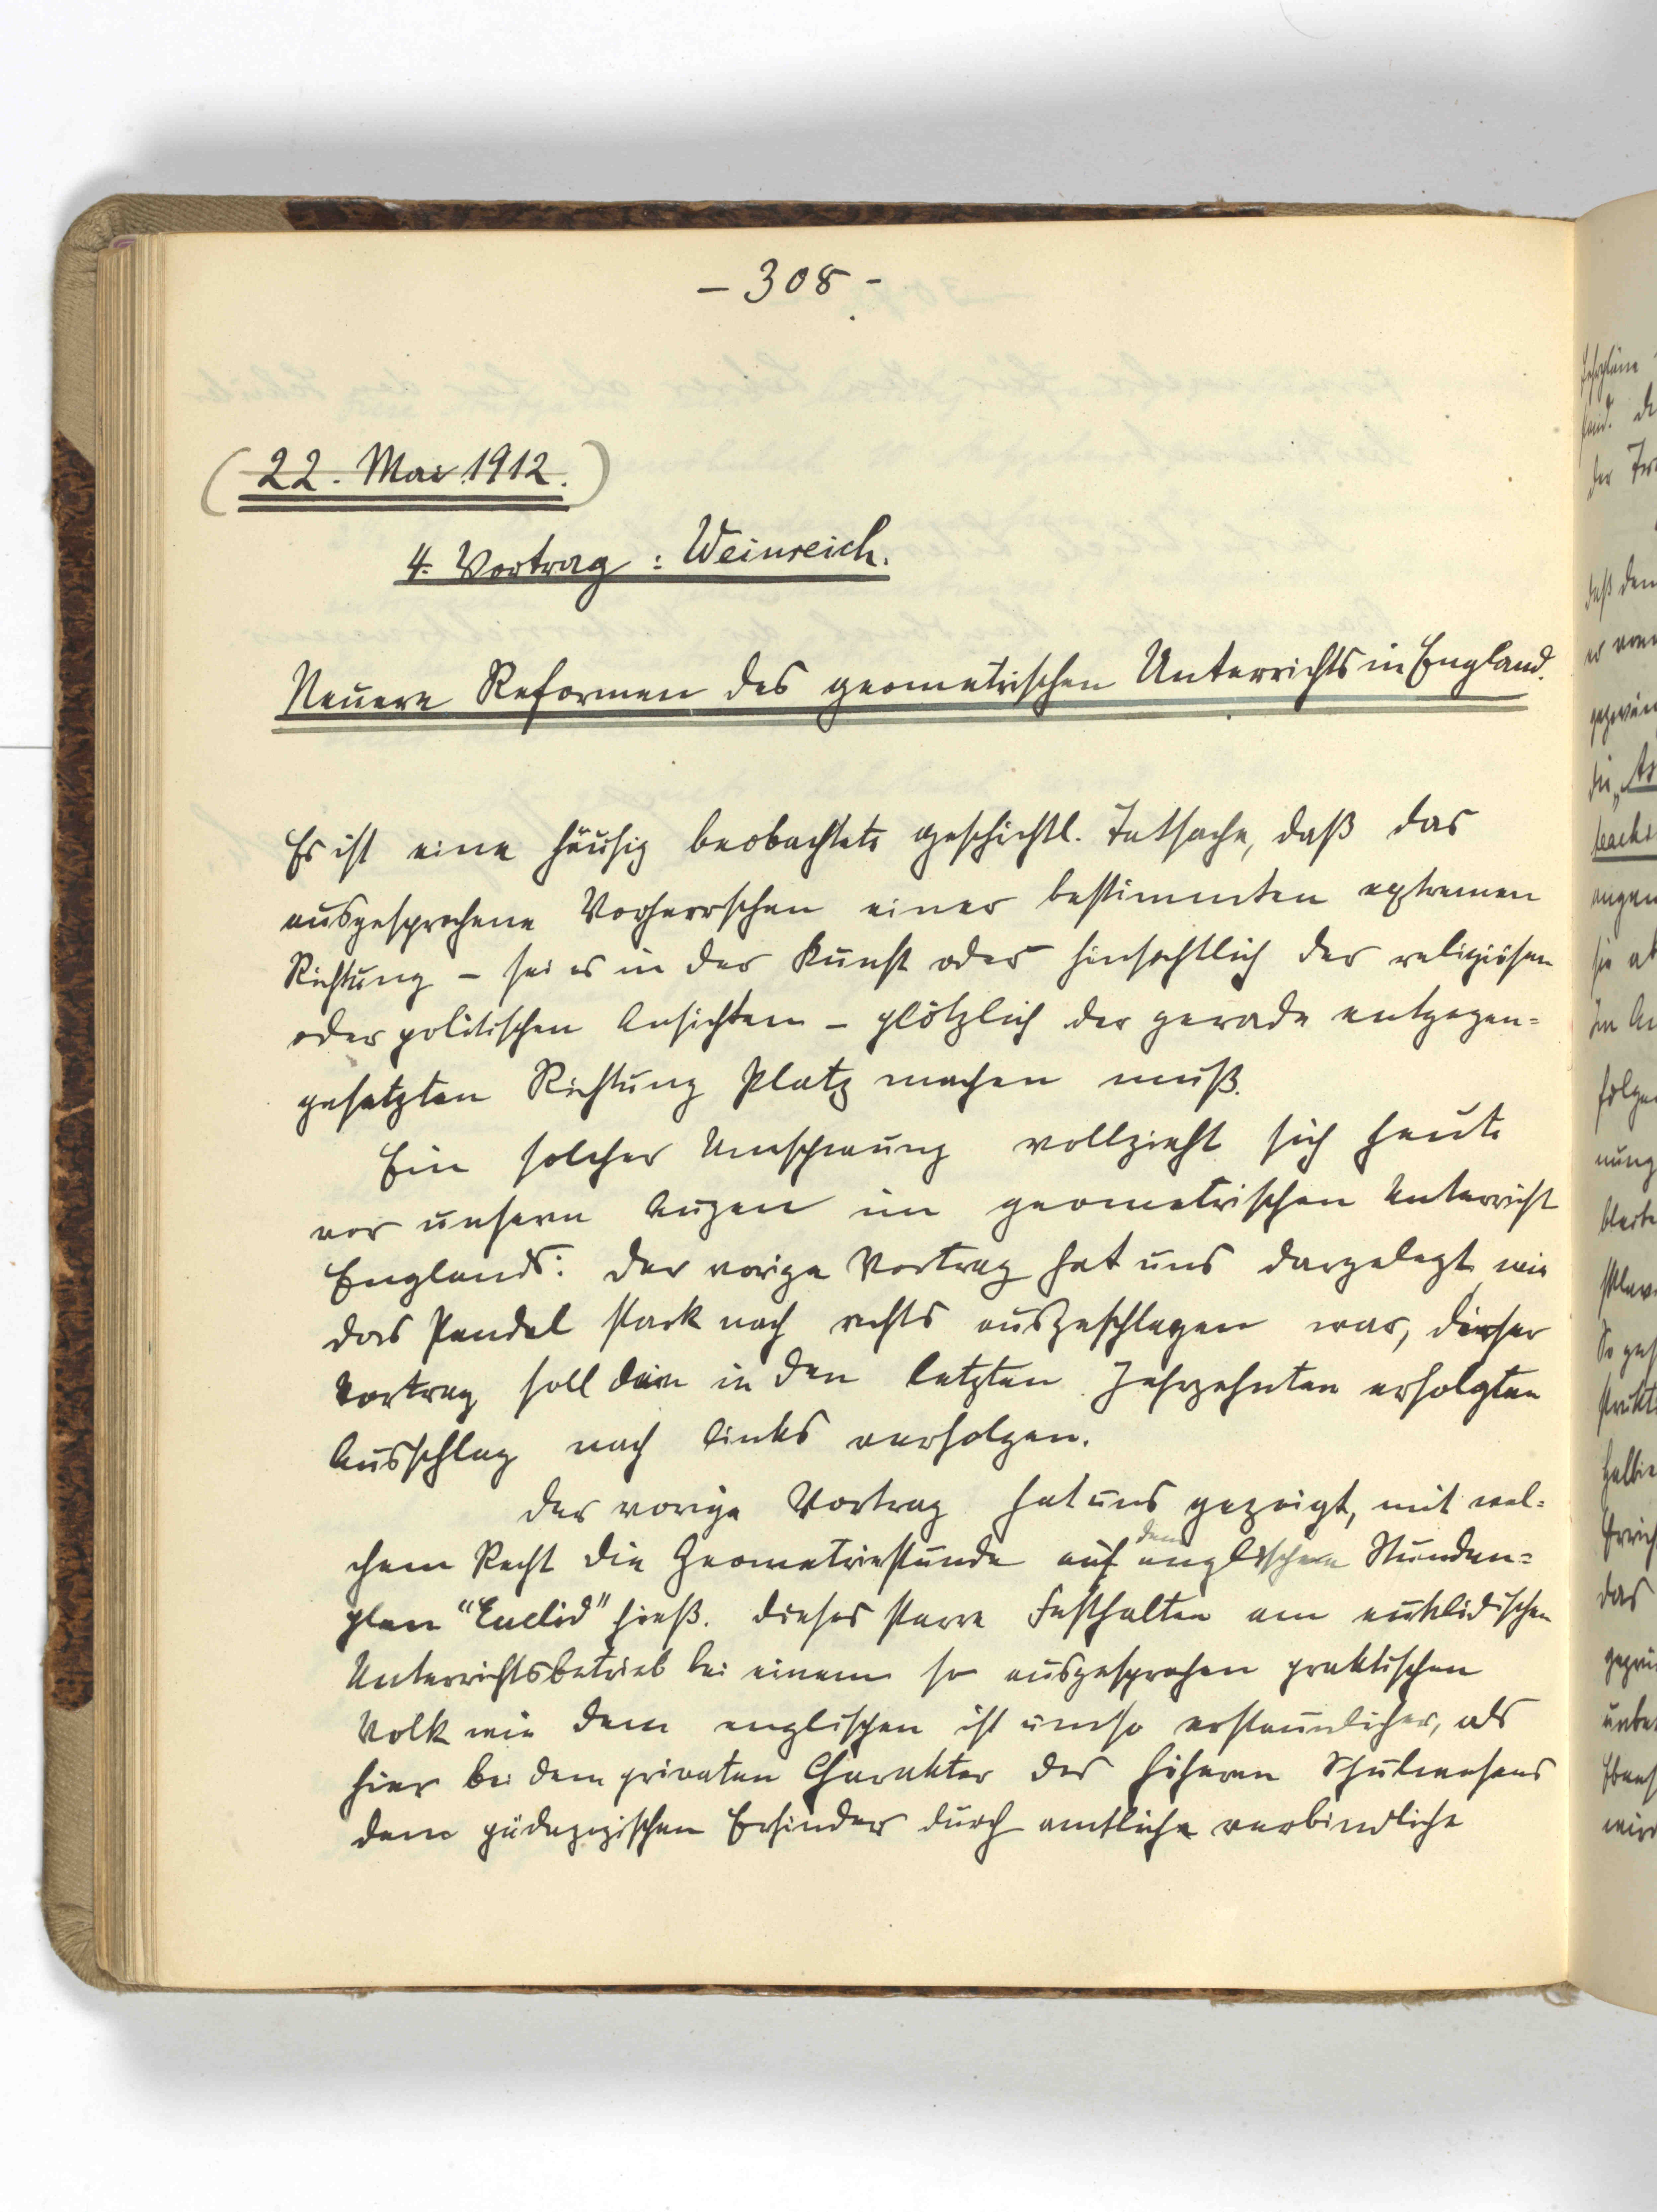 – 308 –
(22. Mai 1912.)
4. Vortrag: Weinreich.
Neuere Reformen des geometrischen Unterrichts in England.
Es ist eine häufig beobachtete geschichtl. Tatsache, daß das
ausgesprochene Vorherrschen einer bestimmten extremen
Richtung – sei es in der Kunst oder hinsichtlich der religiösen
oder politischen Ansichten – plötzlich der gerade entgegen=
gesetzten Richtung Platz machen muß.
Ein solcher Umschwung vollzieht sich heute
vor unsern Augen im geometrischen Unterricht
Englands: der vorige Vortrag hat uns dargelegt wie
das Pendel stark nach rechts ausgeschlagen war, dieser
Vortrag soll den in den letzten Jahrzehnten erfolgten
Ausschlag nach links verfolgen.
Der vorige Vortrag hat uns gezeigt, mit wel=
chem Recht die Geometriestunde auf dem englischen Stunden=
plan "Euclid" hieß. Dieses starre Festhalten am euklidischen
Unterrichtsbetrieb bei einem so ausgesprochen praktischen
Volk wie dem englischen ist umso erstaunlicher, als
hier bei dem privaten Charakter des höheren Schulwesens
dem pädagogischen Erfinder durch amtliche verbindliche